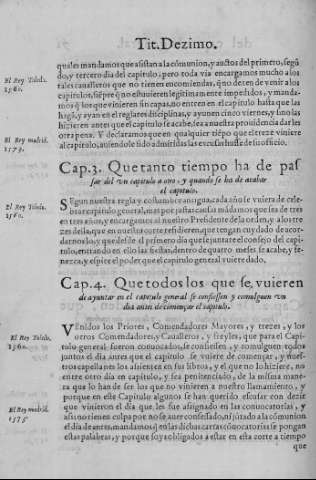 Tit. Dezimo.
quales mandamos que asistan a la comunion, y auctos del primero, segũ
El Rey Toledo. 1560.
do, y tercero dia del capitulo; pero toda via encargamos mucho a los
tales caualleros que no tienen encomiendas, q̃ no dexen de venir a los
capitulos, siẽpre q̃ no estuuieren legitimamente impedidos, y manda-
mos q̃ los que vinieren sin capas, no entren en el capitulo hasta que las
hagã, y ayan en el reglares disciplinas, y ayunen cinco viernes, y sino las
hizieren antes que el capitulo se acabe, se a a nuestra prouidencia dar les
El Rey madrid. 1573.
otra pena. Y declaramos que en qualquier tiẽpo que estreze viniere
al capitulo, auiendole sido admitidas las escusas huse de su officio.
Cap. 3. Que tanto tiempo ha de pas
sar del vn capitulo a otro: y quando se ha de acabar
el capitulo.
El Rey Toledo. 1560.
SEgun nuestra regla, y costumbre antigua, cada año se vuiera de cele-
brar capitulo general, mas por justas causas mãdamos que sea de tres
en tres años, y encargamos al nuestro Presidente de la orden, y a los tre
zes della, que en nuestra corte residieren, que tengan cuydado de acor-
darnoslo, y en siendo le el primero dia que juntarẽ con ojo del capitu-
lo, entiendan en el estableſcimiẽto, dentro de quatro meses se acabe, y fe-
nezca, y espire el poder que el capitulo general vuiere dado.
Cap. 4. Que todos los que se, vuieren
de ayuntar en el capitulo general se confiessen y comulguen vn
dia antes de començar el capitulo.
El Rey Toledo. 1560.
VEnidos los Priores, Comendadores Mayores, y trezes, y los
otros Comendadores, Caualleros, y freyles, que para el Capi-
tulo general fueron conuocados, se confiessen, y comulguen todos
juntos el dia antes que el capitulo se vuiere de començar, y nues-
tros capellanes los assienten en sus libros, y el que no lo hiziere, no
entre otro dia en capitulo, y sea penitenciado, de la misma mane-
ra que lo han de ser los que no vinieren a nuestro llamamiento, y
porque en este Capitulo algunos se han querido escusar con dezir
El Rey madrid. 1573.
que vinieron el dia que les fue asignado en las conuocatorias, y
assi no tienen culpa por no se auer confessado, ni jurado a la comunion
el dia de antes, mandamos q̃ en las dichas cartas cõuocatorias se pongan
estas palabras, y porque soys obligados a estar en esta corte a tiempo
que